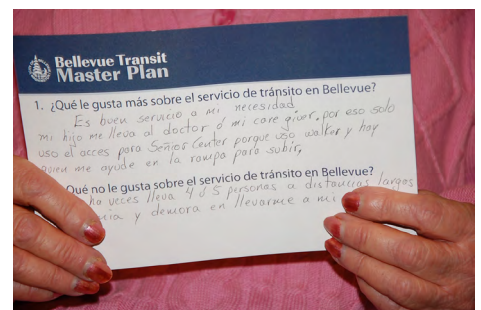 Bellevue Transit
Master Plan
1. ¿Qué le gusta más sobre el servicio de tránsito en Bellevue?
Es buen servicio a mi necesidad
mi hijo me lleva al doctor ó mi care giver, por eso solo
uso el acces para Señios Center porque uso walker y hay
quien me ayude en la rampa para subir,
Qué no le gusta sobre el servicio de tránsito en Bellevue?
ha veces lleva 4 ó 5 personas a distancias largos
y demora en llevarme a mi